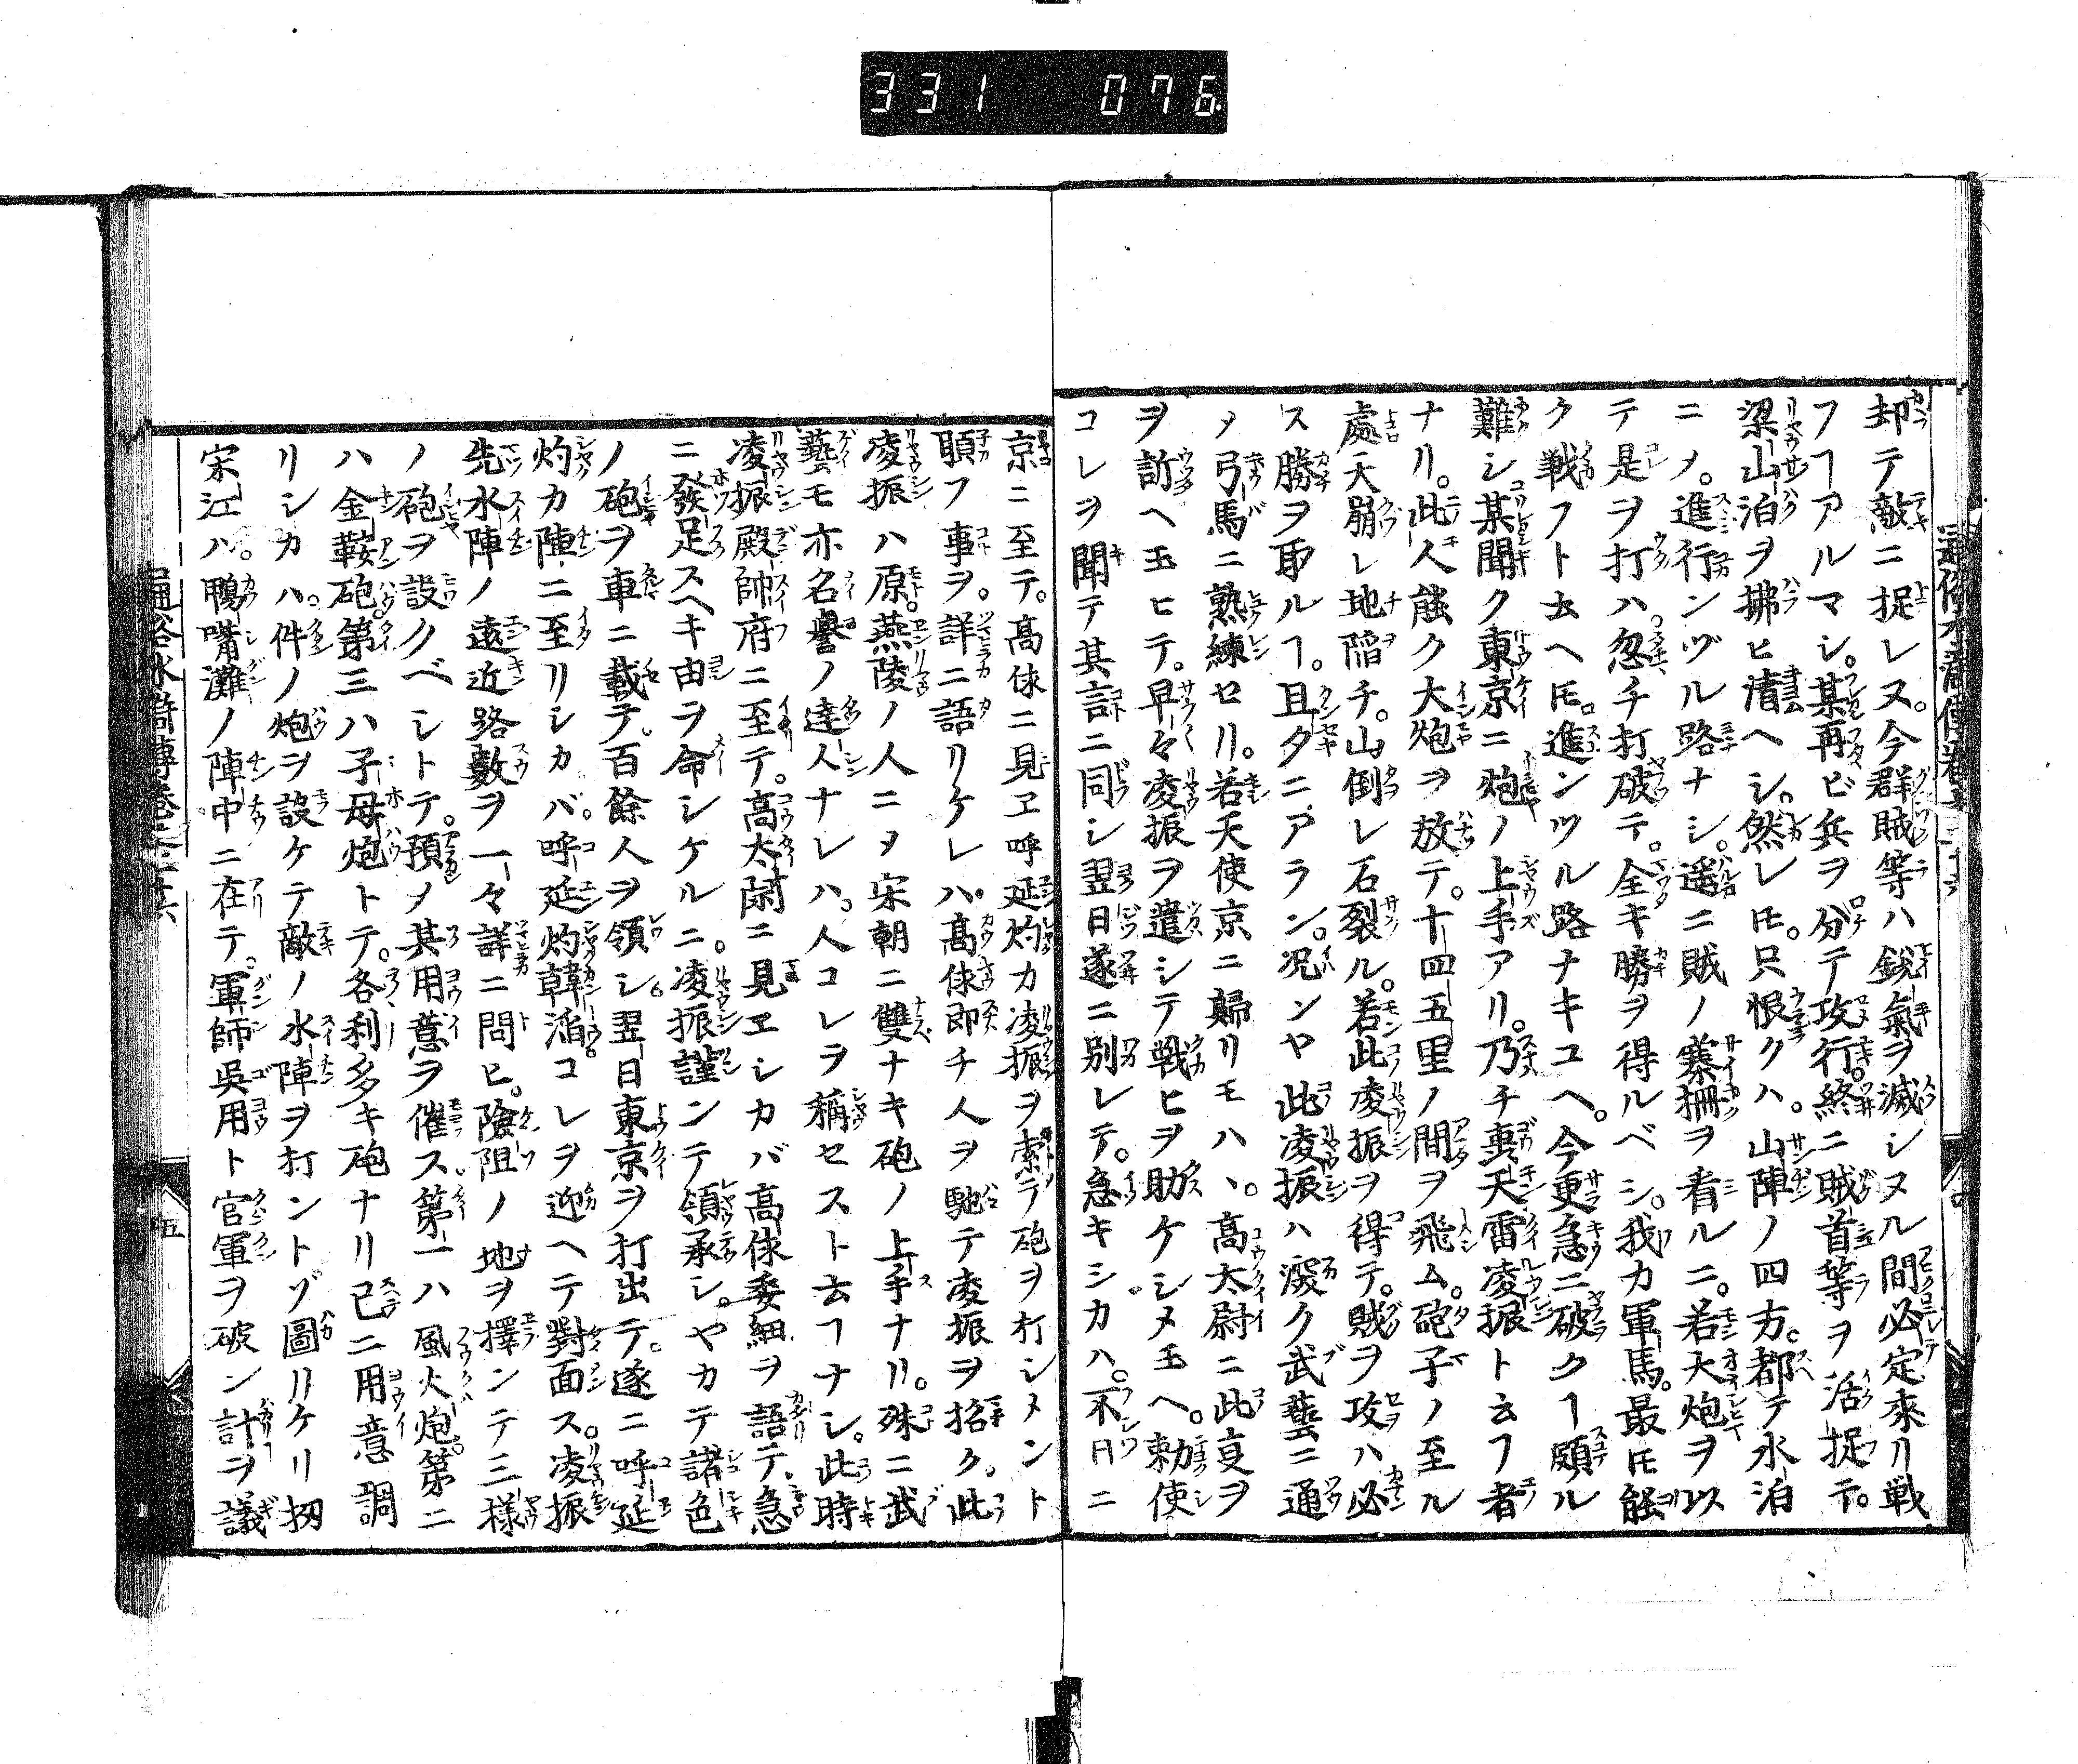 331 076
却テ敵ニ捉レヌ。今群賊等ハ鋭氣ヲ滅シヌル間必定来リ戦
フヿアルマシ。某再ビ兵ヲ分テ攻行。終ニ賊首等ヲ活捉テ。
梁山泊ヲ拂ヒ清ヘシ。然レ𪜈。只恨クハ。山陣ノ四方。都テ水泊
ニメ。進行ンヅル路ナシ。遥ニ賊ノ寨柵ヲ看ルニ。若大炮ヲ以
テ是ヲ打ハ。忽チ打破テ。全キ勝ヲ得ルベシ。我カ軍馬。最𪜈能
ク戦フト云ヘ𪜈。進ンツル路ナキユヘ。今更急ニ破クヿ頗ル
難シ。某聞ク東京ニ炮ノ上手アリ。乃チ轟天雷凌振ト云フ者
ナリ。此人能ク大炮ヲ放テ。十四五里ノ間ヲ飛ム。砲子ノ至ル
處天崩レ地陷チ。山倒レ石裂ル。若此凌振ヲ得テ。賊ヲ攻ハ必
ス勝ヲ取ルヿ。且夕ニアラン。况ンヤ此凌振ハ深ク武藝ニ通
メ弓馬ニ熟練セリ。若天使京ニ歸リモハ、。高太尉ニ此㕝ヲ
ヲ訴ヘ玉ヒテ。早々凌振ヲ遣シテ戦ヒヲ助ケシメ玉ヘ。勅使
コレヲ聞テ其言ニ同シ翌日遂ニ別レテ。急キシカハ。不日ニ
京ニ至テ。髙俅ニ見ヱ呼延灼カ凌振ヲ索テ砲ヲ打シメント
願フ事ヲ。詳ニ語リケレハ。髙俅即チ人ヲ馳テ凌振ヲ招ク。此
凌振ハ原。燕陵ノ人ニヌ宋朝ニ雙ナキ砲ノ上手ナリ。殊ニ武
藝モ亦名譽ノ達人ナレハ。人コレヲ稱セスト云フヿナシ。此時
凌振殿帥府ニ至テ。高太尉ニ見ヱシカバ高俅委細ヲ語テ。急
ニ發足スヘキ由ヲ命シケルニ。凌振謹ンテ領承シ。ヤカテ諸色
ノ砲ヲ車ニ載テ。百餘人ヲ領シ翌日東京ヲ打出テ。遂ニ呼延
灼カ陣ニ至リシカバ。呼延灼韓滔。コレヲ迎ヘテ對面ス。凌振
先水陣ノ遠近路數ヲ一々詳ニ問ヒ。險阻ノ地ヲ擇ンテ三樣
ノ砲ヲ設クベシトテ。預メ其用意ヲ催ス第一ハ風火炮。第二
ハ金鞍砲。第三ハ子母炮トテ。各利多キ砲ナリ已ニ用意調
リシカハ。件ノ炮ヲ設ケテ敵ノ水陣ヲ打ントゾ圖リケリ扨
宋江ハ。鴨嘴灘ノ陣中ニ在テ。軍師呉用ト官軍ヲ破ン計ヲ議
五